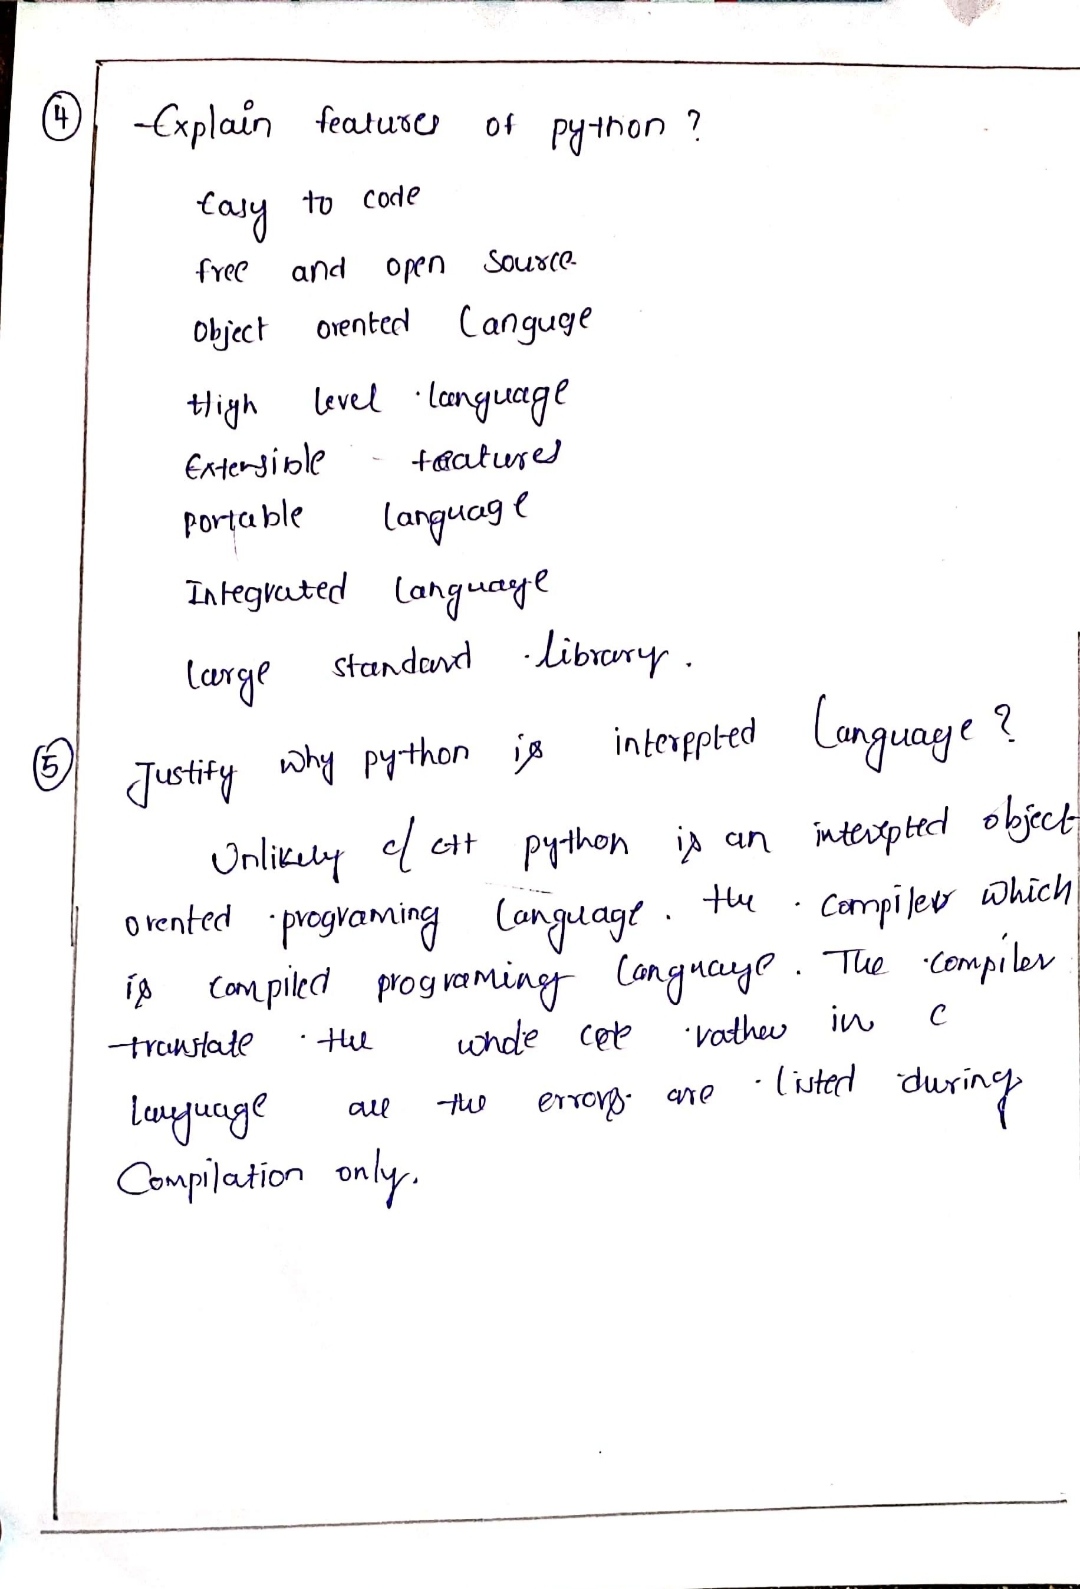 4 Explain features of python ?
Easy to code
free and open source
Object orented Languge
High level language
Extensible features
portable language
Integrated language
large standard library.
5 Justify why python is interppted Language ?
Unlikely c/ c++ python is an interxpted object
orented programing language. the compiler which
is compiled programing language. The compiler
translate the whole rather in c
language all the errors are listed during
Compilation only.